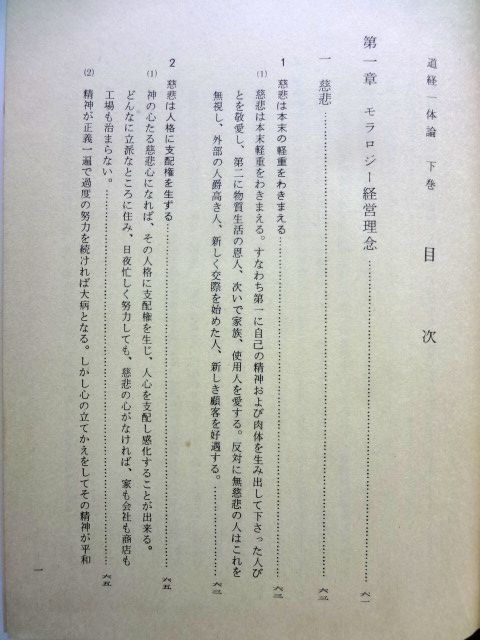 道経一体論 下巻 目次
第一章 モラロジー経営理念……六一
一 慈悲……六三
1 慈悲は本末の軽重をわきまえる……六三
(1) 慈悲は本末軽重をわきまえる。すなわち第一に自己の精神および肉体を生み出して下さった人び
とを敬愛し、第二に物質生活の恩人、次いで家族、使用人を愛する。反対に無慈悲の人はこれを
無視し、外部の人爵高き人、新しく交際を始めた人、新しき顧客を好遇する。……六三
2 慈悲は人格に支配権を生ずる……六五
(1) 神の心たる慈悲心になれば、その人格に支配権を生じ、人心を支配し感化することが出来る。
どんなに立派なところに住み、日夜忙しく努力しても、慈悲の心がなければ、家も会社も商店も
工場も治まらない。……六五
(2) 精神が正義一遍で過度の努力を続ければ大病となる。しかし心の立てかえをしてその精神が平和
一